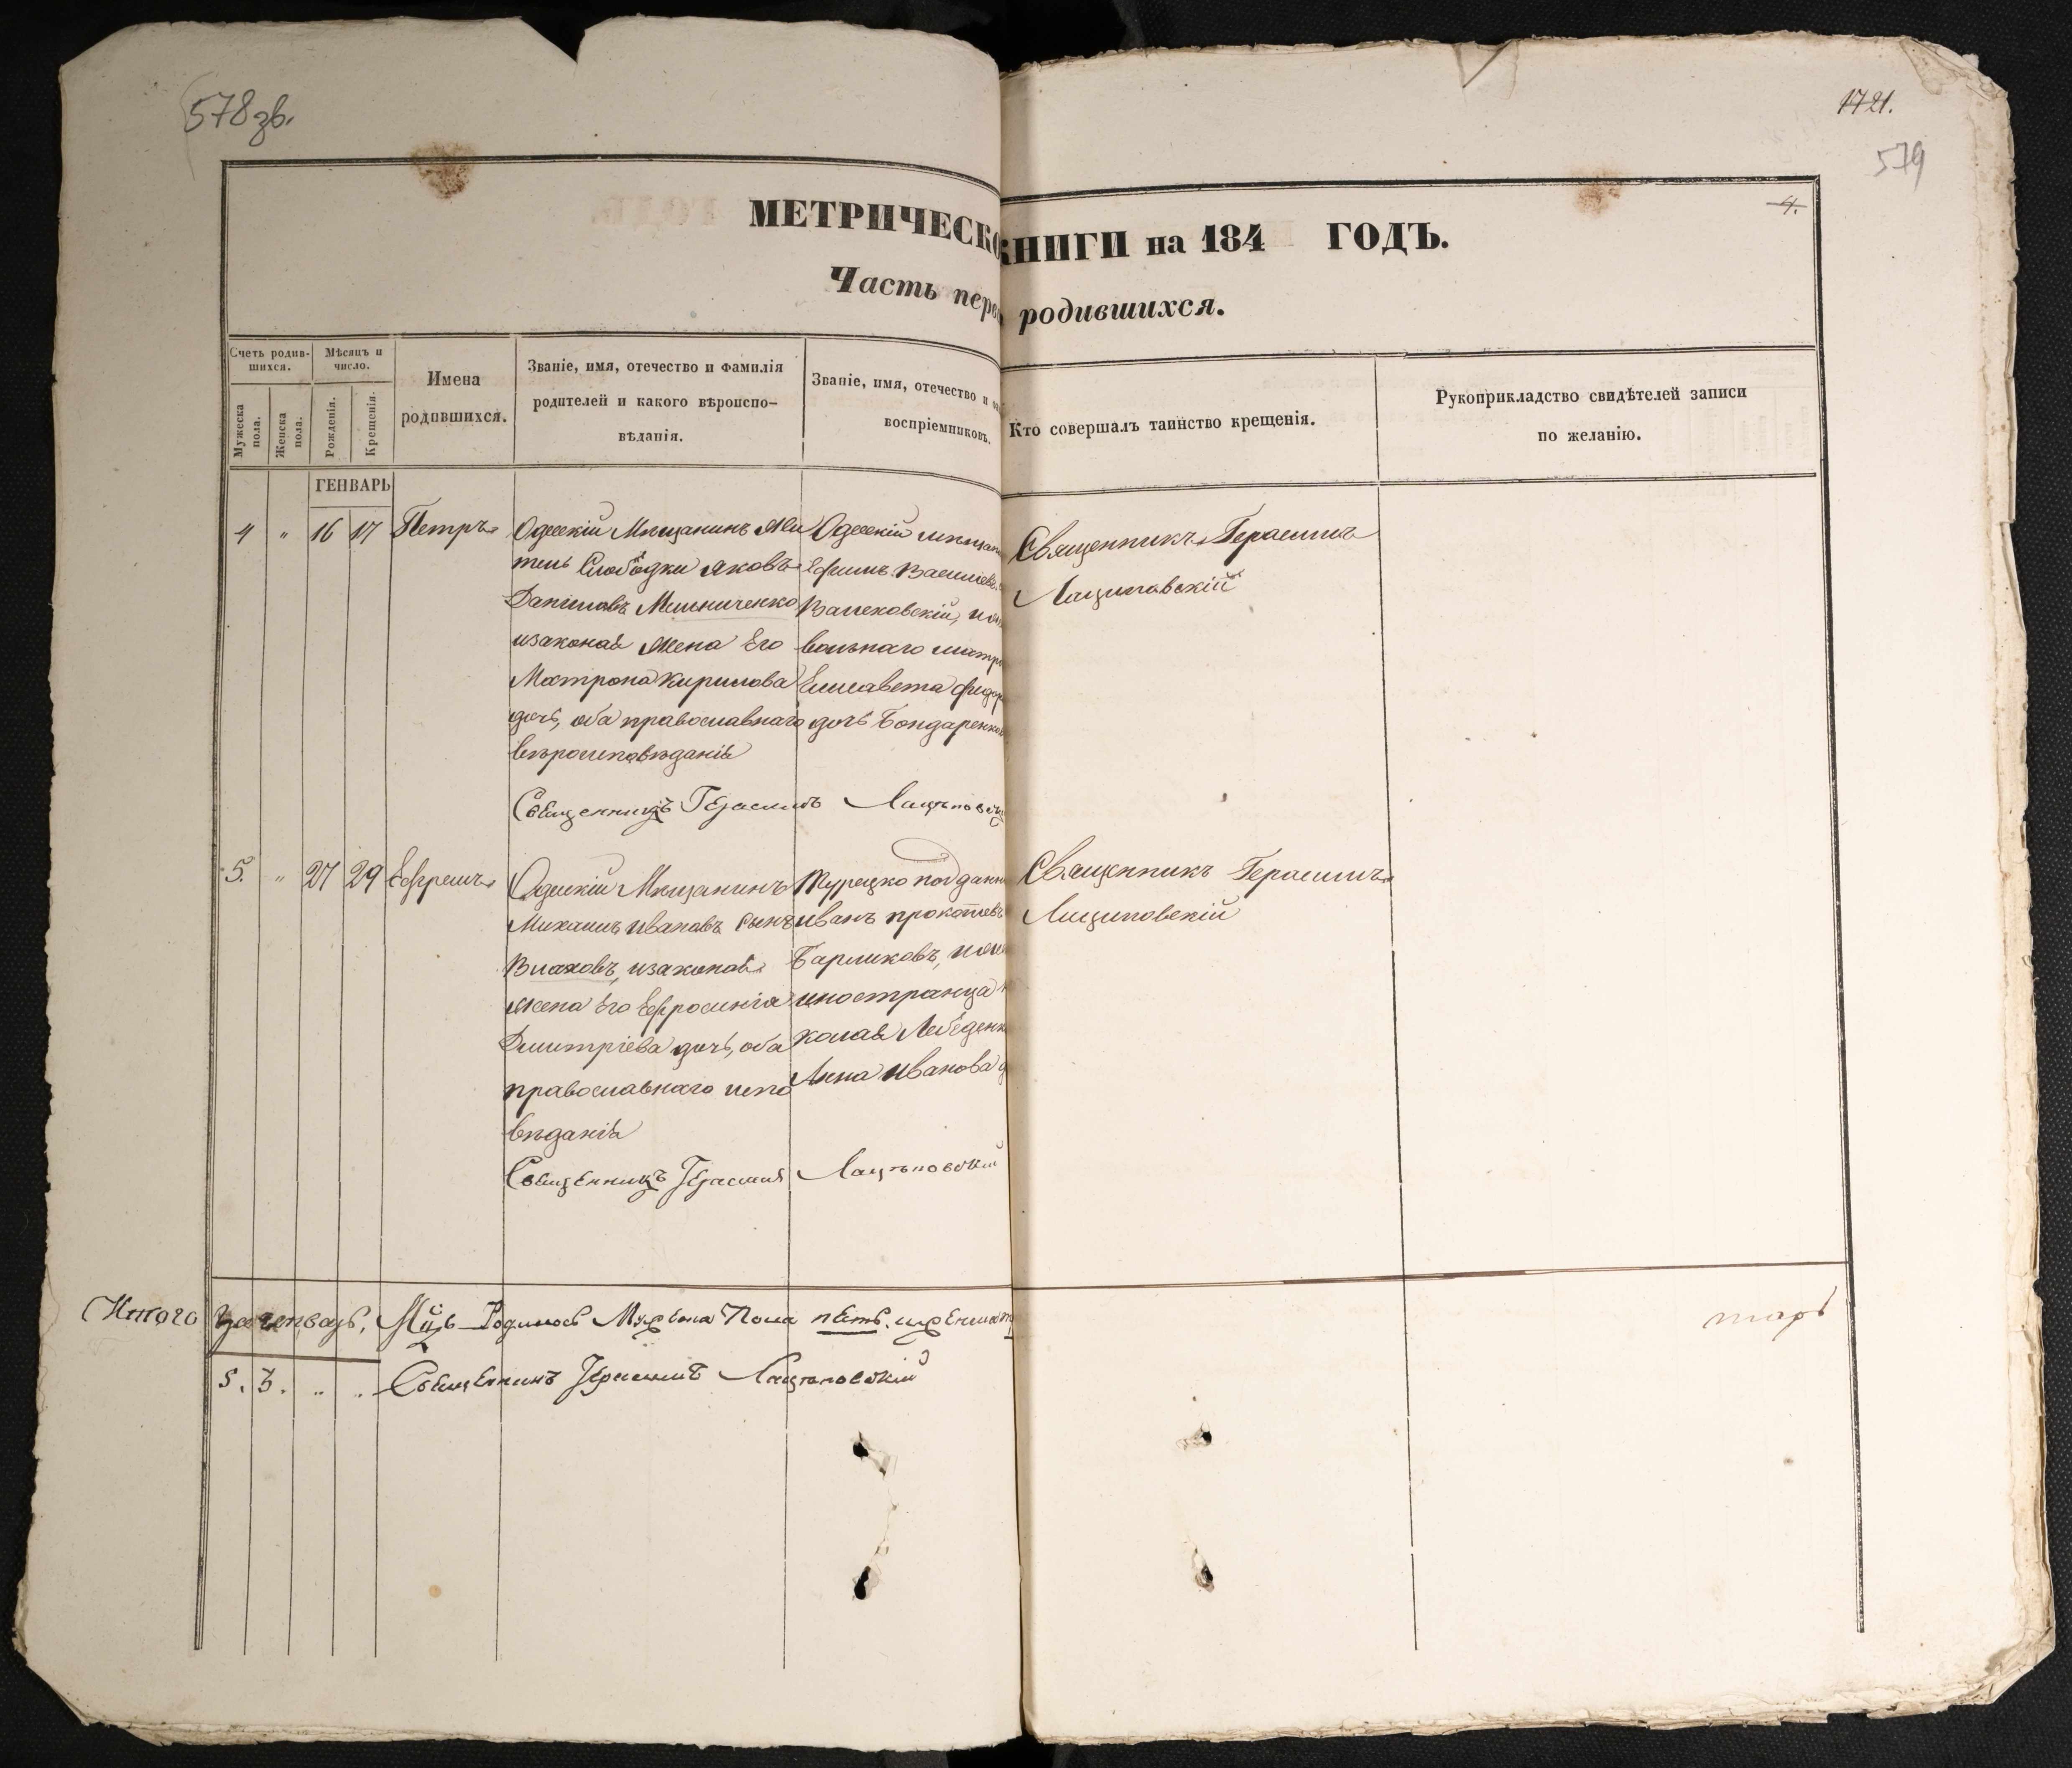 578 зв.
1721.
579
4.
МЕТРИЧЕСКО КНИГИ на 184 ГОДЪ.
Часть перв родившихся.
Счетъ родив-
шихся.
Мужеска
пола.
Женска
пола.
Мѣсяцъ и
число.
Рожденія.
Крещенія.
Имена
родившихся.
Званіе, имя, отечество и фамилія
родителей и какого вѣроиспо-
вѣданія.
Званіе, имя, отечество и
воспріемниковъ.
Кто совершалъ таинство крещенія.
Рукоприкладство свидѣтелей записи
по желанію.
ГЕНВАРЬ
4 " 16 17 Петръ
Одескій Мѣщанинъ Жи
тель Слободки яковъ
Даниловъ Мельниченко
изаконая жена Его
Матрона Кирилова
дочь, оба православнаго
вѣроисповѣданія
Одескій мѣщан
Ефимъ Василіев
вольнаго матр
Елисавета фидор
дочь Бондаренков
Священникъ Герасимъ
Лациповскій
Священникъ Герасимъ Лацыповскі
5. " 27 29 Ефремъ
Одескій Мѣщанинъ
Михаилъ Ивановъ сынъ
Влаховъ, изаконая
жена Его Ефросинія
Дмитріева дочь, оба
православнаго испо
вѣданія
Турецко подданн
иванъ прокопіевъ
Барликовъ, и
иностранца
колая Лебеденк
Анна Иванова д
Священникъ Герасимъ
Лициповскій
Священникъ Герасимъ Лацыповскій
Итого за генварь Мцъ Родилось Мужеска Пола пять. иженска т
тарь
5. 3. " " Священникъ Герасимъ Лацыповскій